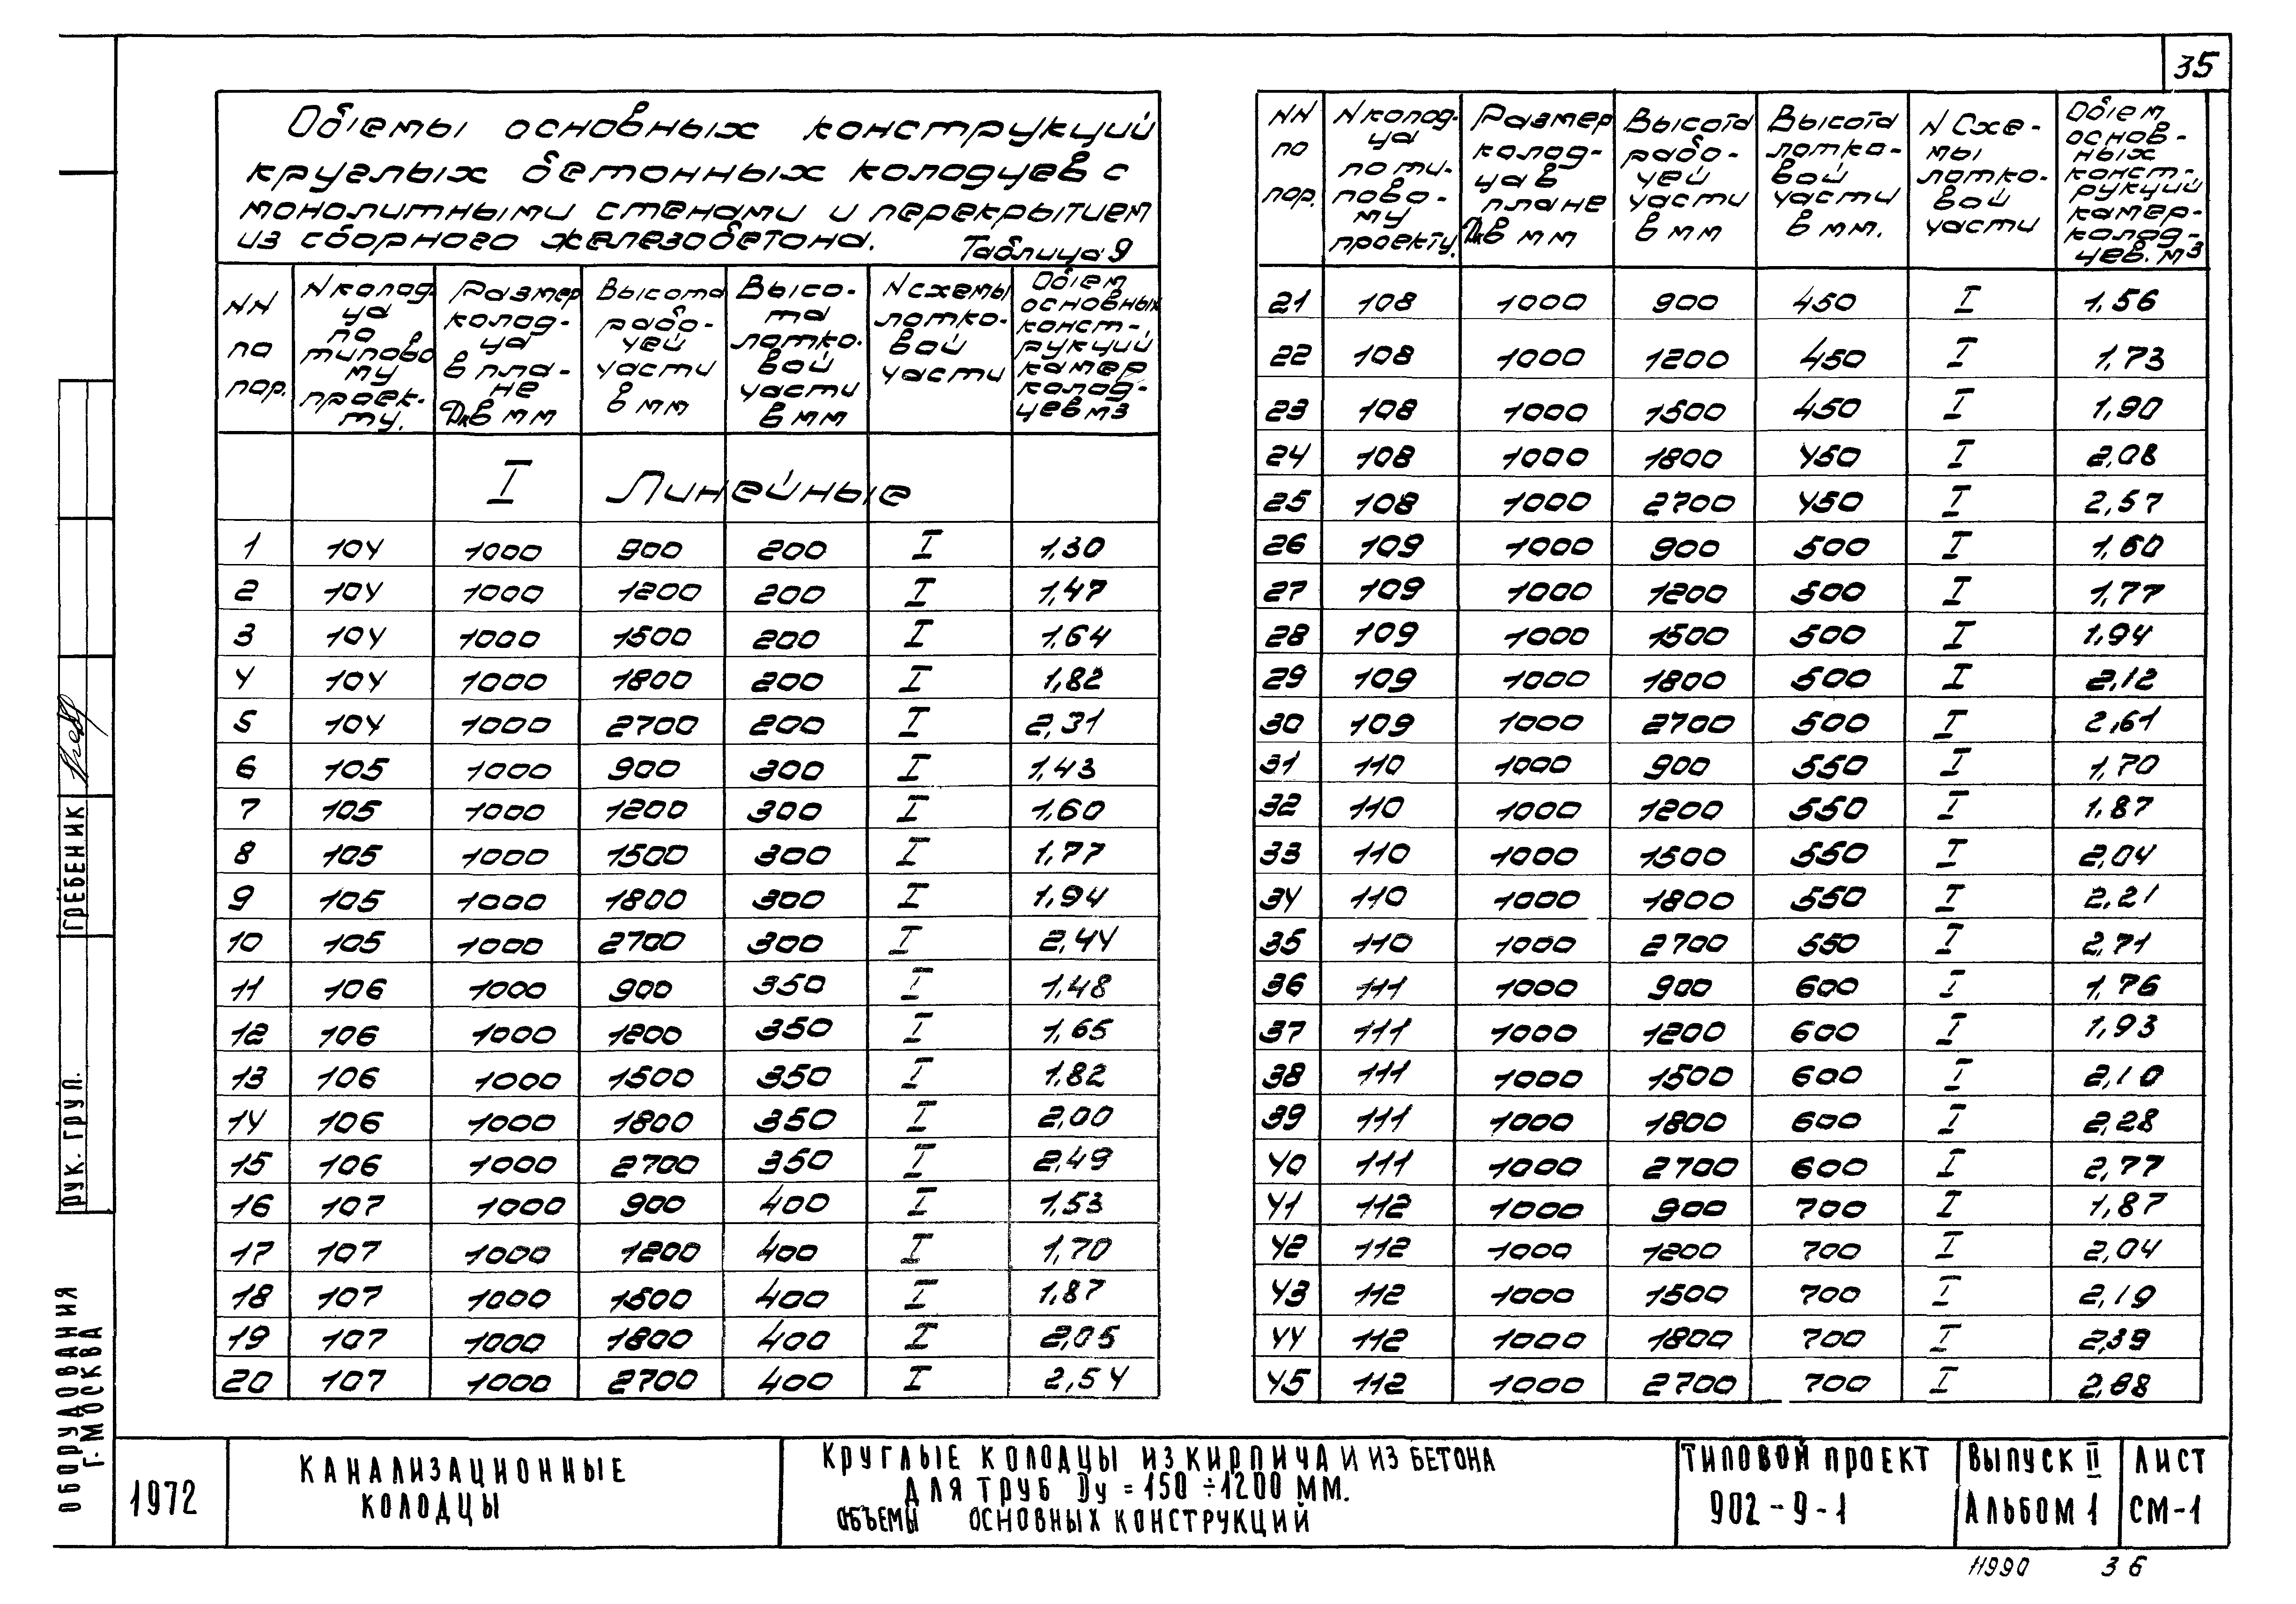 35
Объемы основных конструкций
круглых бетонных колодцев с
монолитными стенами и перекрытием
из сборного железобетона. Таблица 9
NN по пор. | N колодца по типовому проекту. | Размер колодца в плане Дк в мм | Высота рабочей части в мм | Высота лотковой части в мм | N схемы лотковой части | Объем основных конструкций камер колодцев м3
I Линейные
1 104 1000 900 200 I 1,30
2 104 1000 1200 200 I 1,47
3 104 1000 1500 200 I 1,64
4 104 1000 1800 200 I 1,82
5 104 1000 2700 200 I 2,31
6 105 1000 900 300 I 1,43
7 105 1000 1200 300 I 1,60
8 105 1000 1500 300 I 1,77
9 105 1000 1800 300 I 1,94
10 105 1000 2700 300 I 2,44
11 106 1000 900 350 I 1,48
12 106 1000 1200 350 I 1,65
13 106 1000 1500 350 I 1,82
14 106 1000 1800 350 I 2,00
15 106 1000 2700 350 I 2,49
16 107 1000 900 400 I 1,53
17 107 1000 1200 400 I 1,70
18 107 1000 1500 400 I 1,87
19 107 1000 1800 400 I 2,05
20 107 1000 2700 400 I 2,54
NN по пор. | N колодца по типовому проекту. | Размер колодца в плане Дк в мм | Высота рабочей части в мм | Высота лотковой части в мм. | N Схемы лотковой части | Объем основных конструкций камер-колодцев. м3
21 108 1000 900 450 I 1,56
22 108 1000 1200 450 I 1,73
23 108 1000 1500 450 I 1,90
24 108 1000 1800 450 I 2,08
25 108 1000 2700 450 I 2,57
26 109 1000 900 500 I 1,60
27 109 1000 1200 500 I 1,77
28 109 1000 1500 500 I 1,94
29 109 1000 1800 500 I 2,12
30 109 1000 2700 500 I 2,61
31 110 1000 900 550 I 1,70
32 110 1000 1200 550 I 1,87
33 110 1000 1500 550 I 2,04
34 110 1000 1800 550 I 2,21
35 110 1000 2700 550 I 2,71
36 111 1000 900 600 I 1,76
37 111 1000 1200 600 I 1,93
38 111 1000 1500 600 I 2,10
39 111 1000 1800 600 I 2,28
40 111 1000 2700 600 I 2,77
41 112 1000 900 700 I 1,87
42 112 1000 1200 700 I 2,04
43 112 1000 1500 700 I 2,19
44 112 1000 1800 700 I 2,39
45 112 1000 2700 700 I 2,88
РУК. ГРУП. ГРЕБЕНИК
ОБОРУДОВАНИЯ
Г. МОСКВА
1972
КАНАЛИЗАЦИОННЫЕ
КОЛОДЦЫ
КРУГЛЫЕ КОЛОДЦЫ ИЗ КИРПИЧА И ИЗ БЕТОНА
ДЛЯ ТРУБ Dу = 150 ÷ 1200 ММ.
ОБЪЕМЫ ОСНОВНЫХ КОНСТРУКЦИЙ
ТИПОВОЙ ПРОЕКТ
902-9-1
ВЫПУСК II
АЛЬБОМ 1
ЛИСТ
СМ-1
11990 36